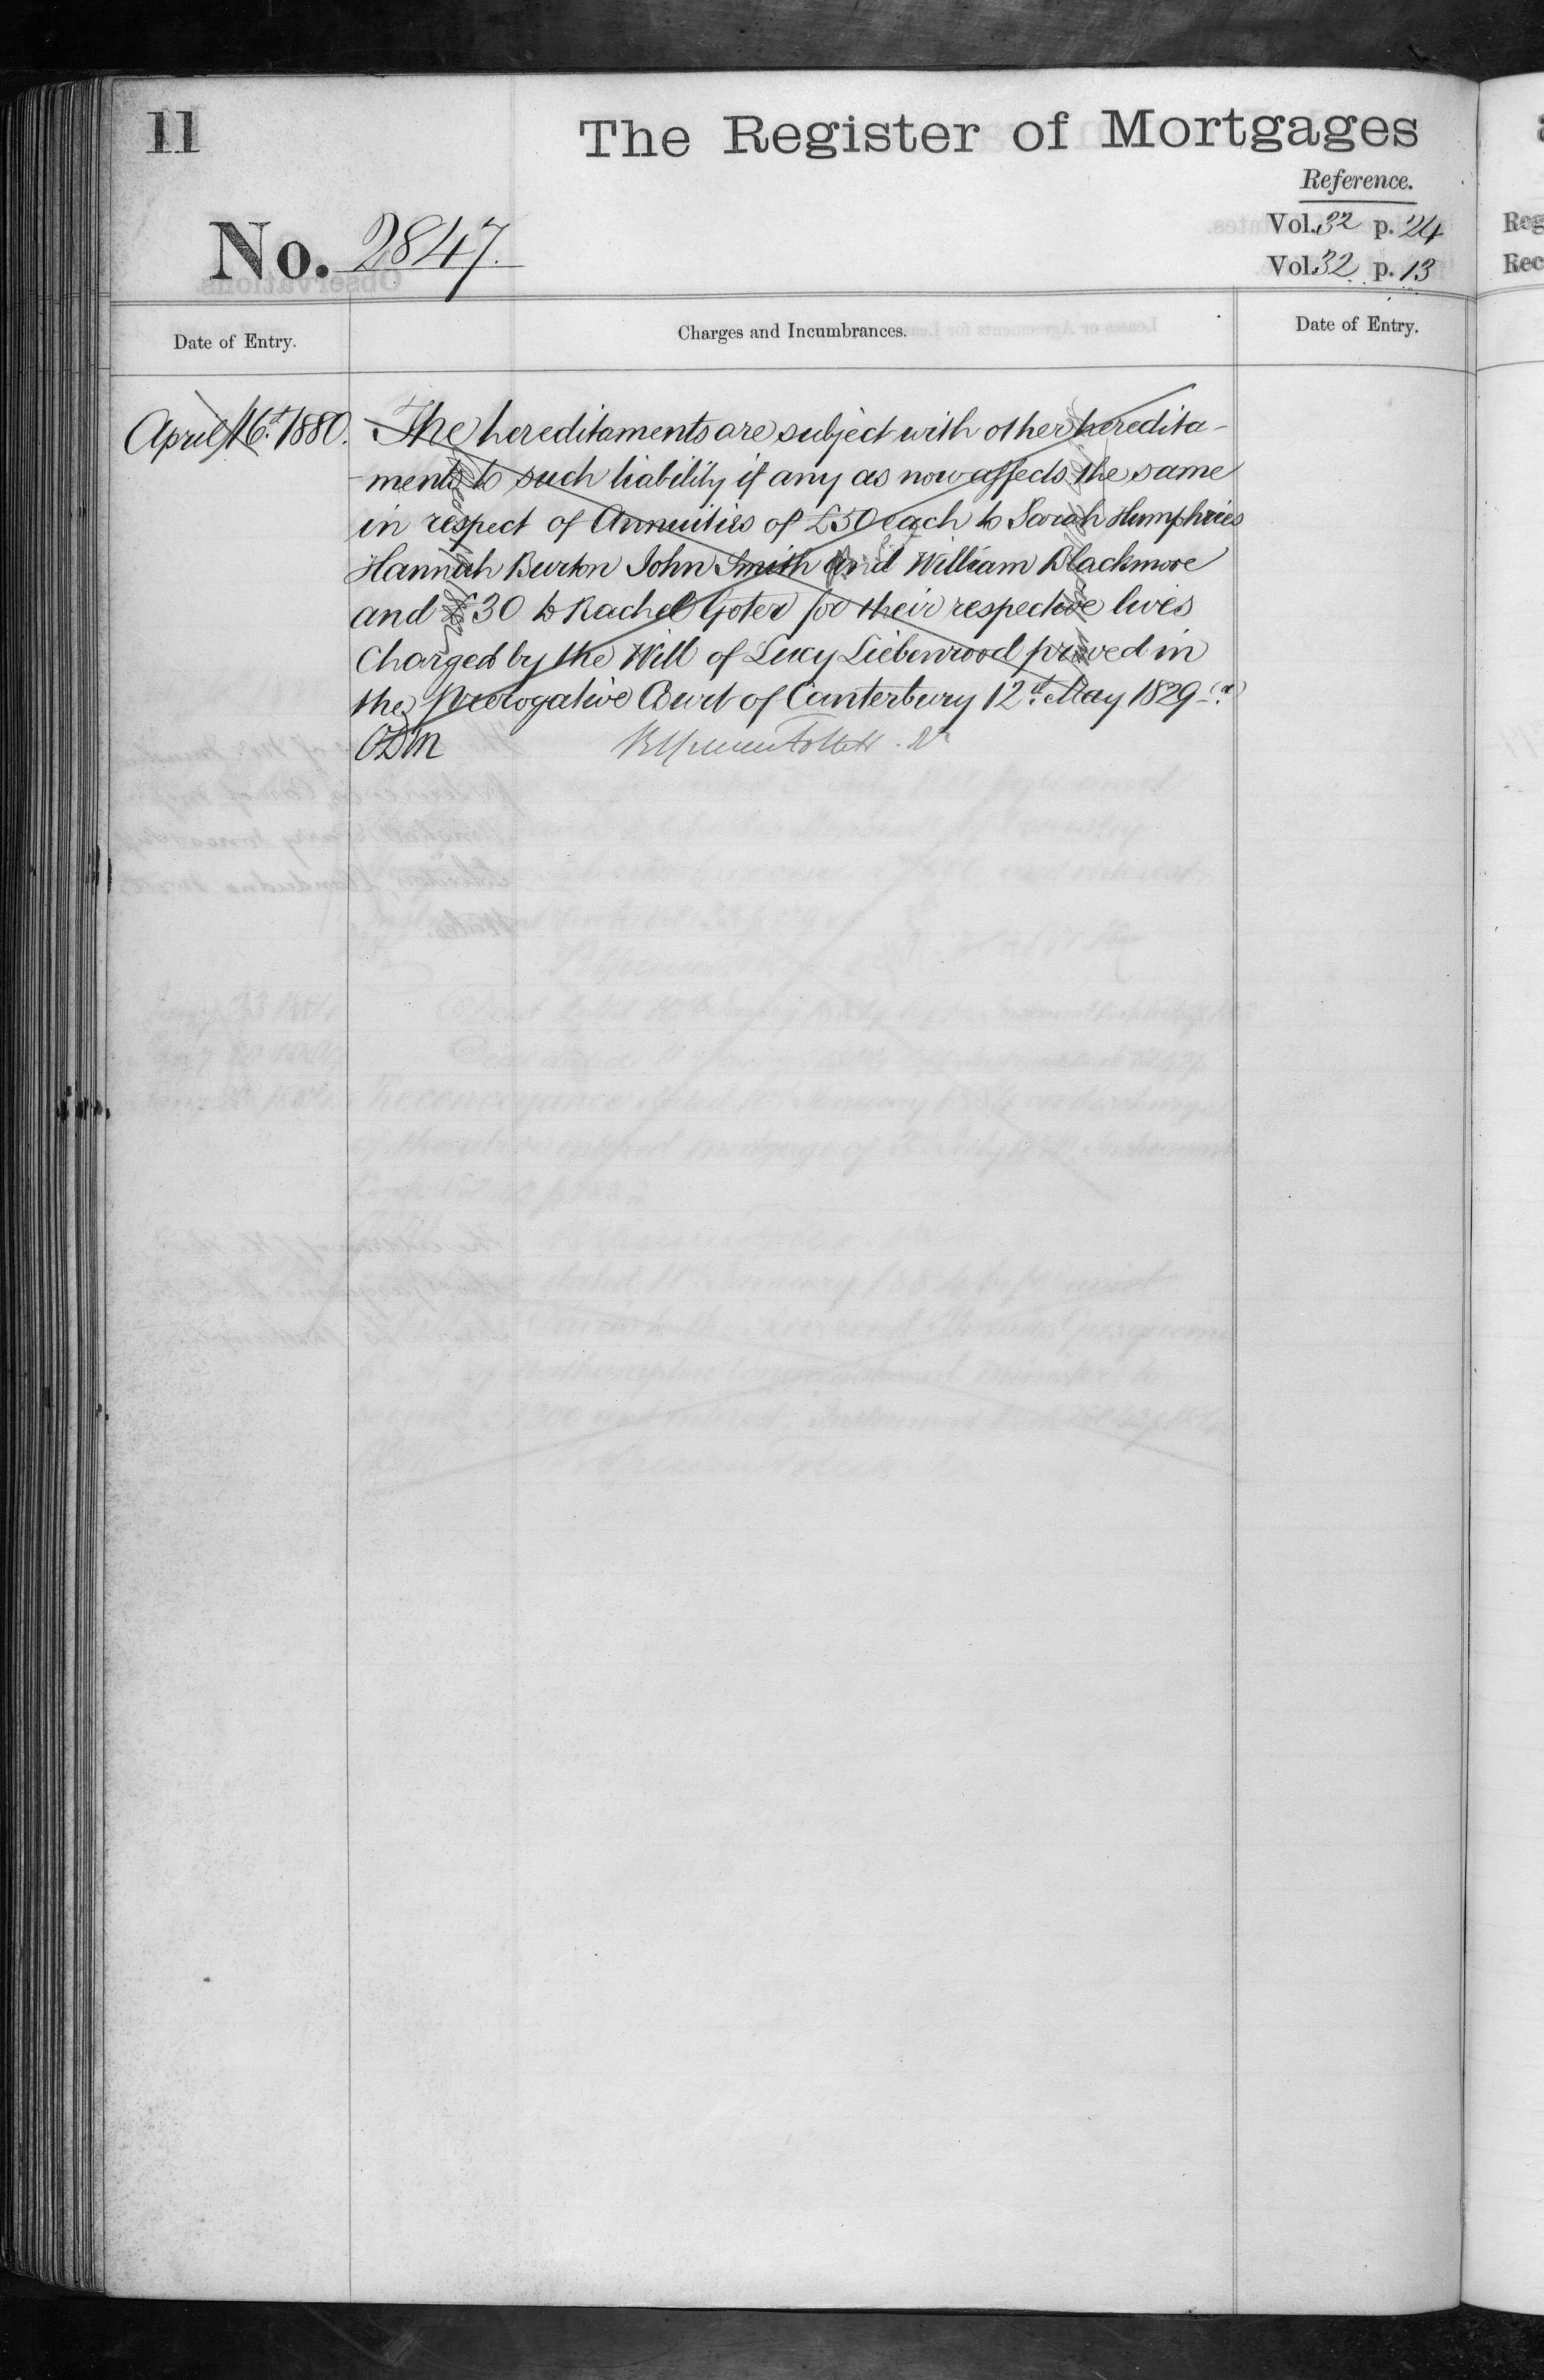 11
The Register of Mortgages
Reference.
No. 2847.
Vol. 32 p. 24
Vol. 32 p. 13
Date of Entry.
Charges and Incumbrances.
Date of Entry.
April 16th 1880.
The hereditaments are subject with other heredita-
-ments to such liability if any as now affects the same
in respect of Annuities of £50 each to Sarah Humphries
Hannah Burton John Smith and William Blackmore
and £30 to Rachel Goter for their respective lives
Charged by the Will of Lucy Liebenrood proved in
the Prerogative Court of Canterbury 12th May 1829
Reg
Rec